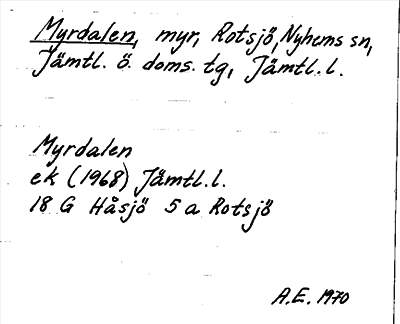 Myrdalen, myr, Rotsjö, Nyhems sn,
Jämtl. ö. doms. tg, Jämtl. l.
Myrdalen
ek (1968) Jämtl. l.
18 G Håsjö 5 a Rotsjö
A.E. 1970